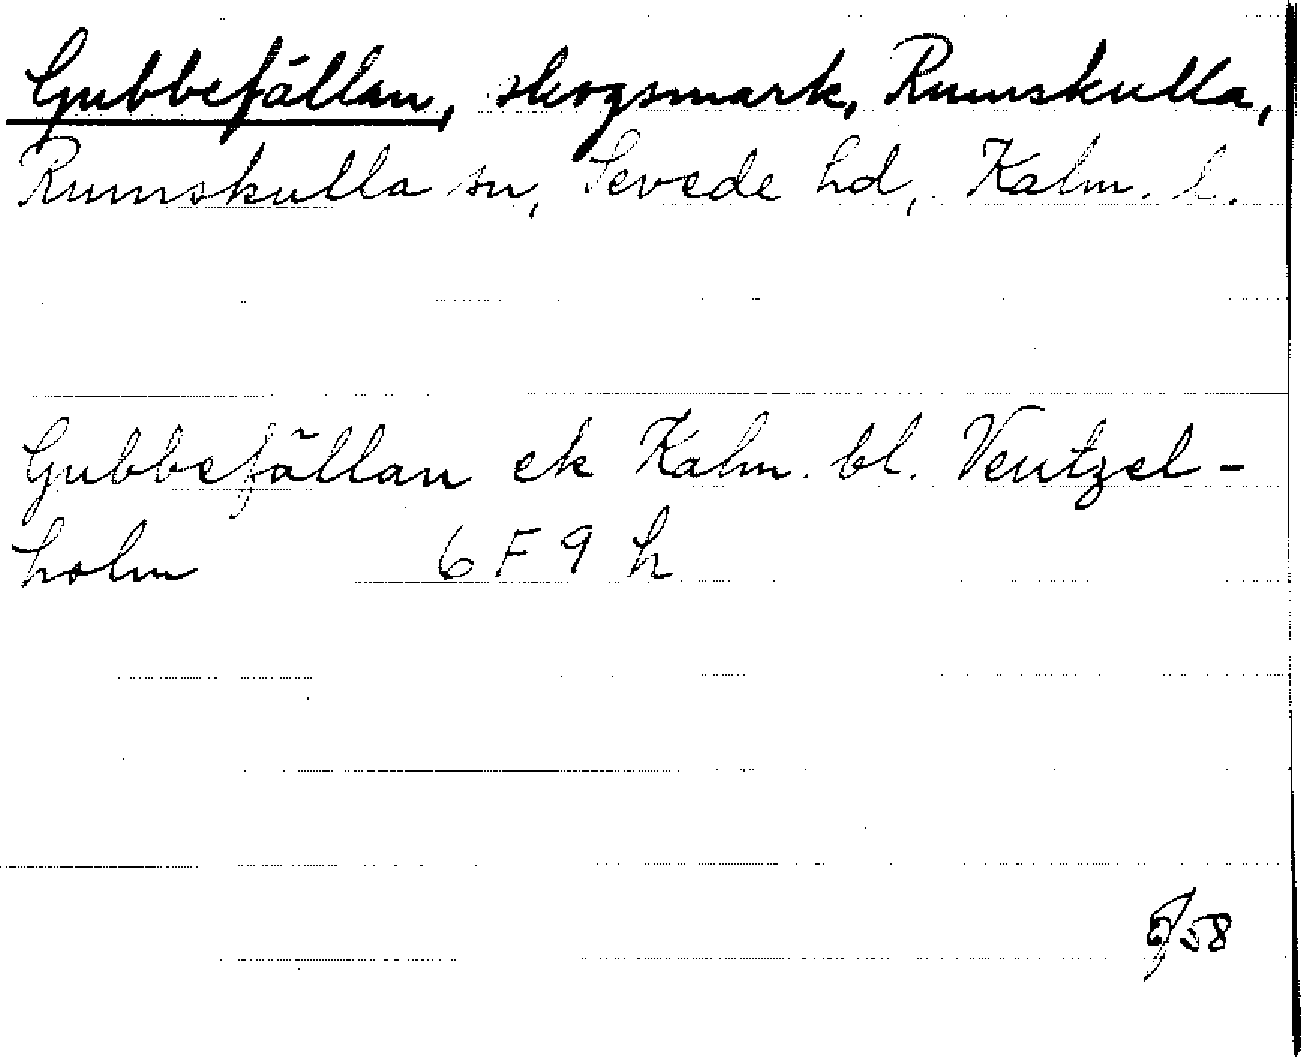 Gubbefällan, skogsmark, Rumskulla,
Rumskulla sn, Sevede hd, Kalm. l.
Gubbefällan ek Kalm. bl. Ventzel-
holm 6 F 9 h
58